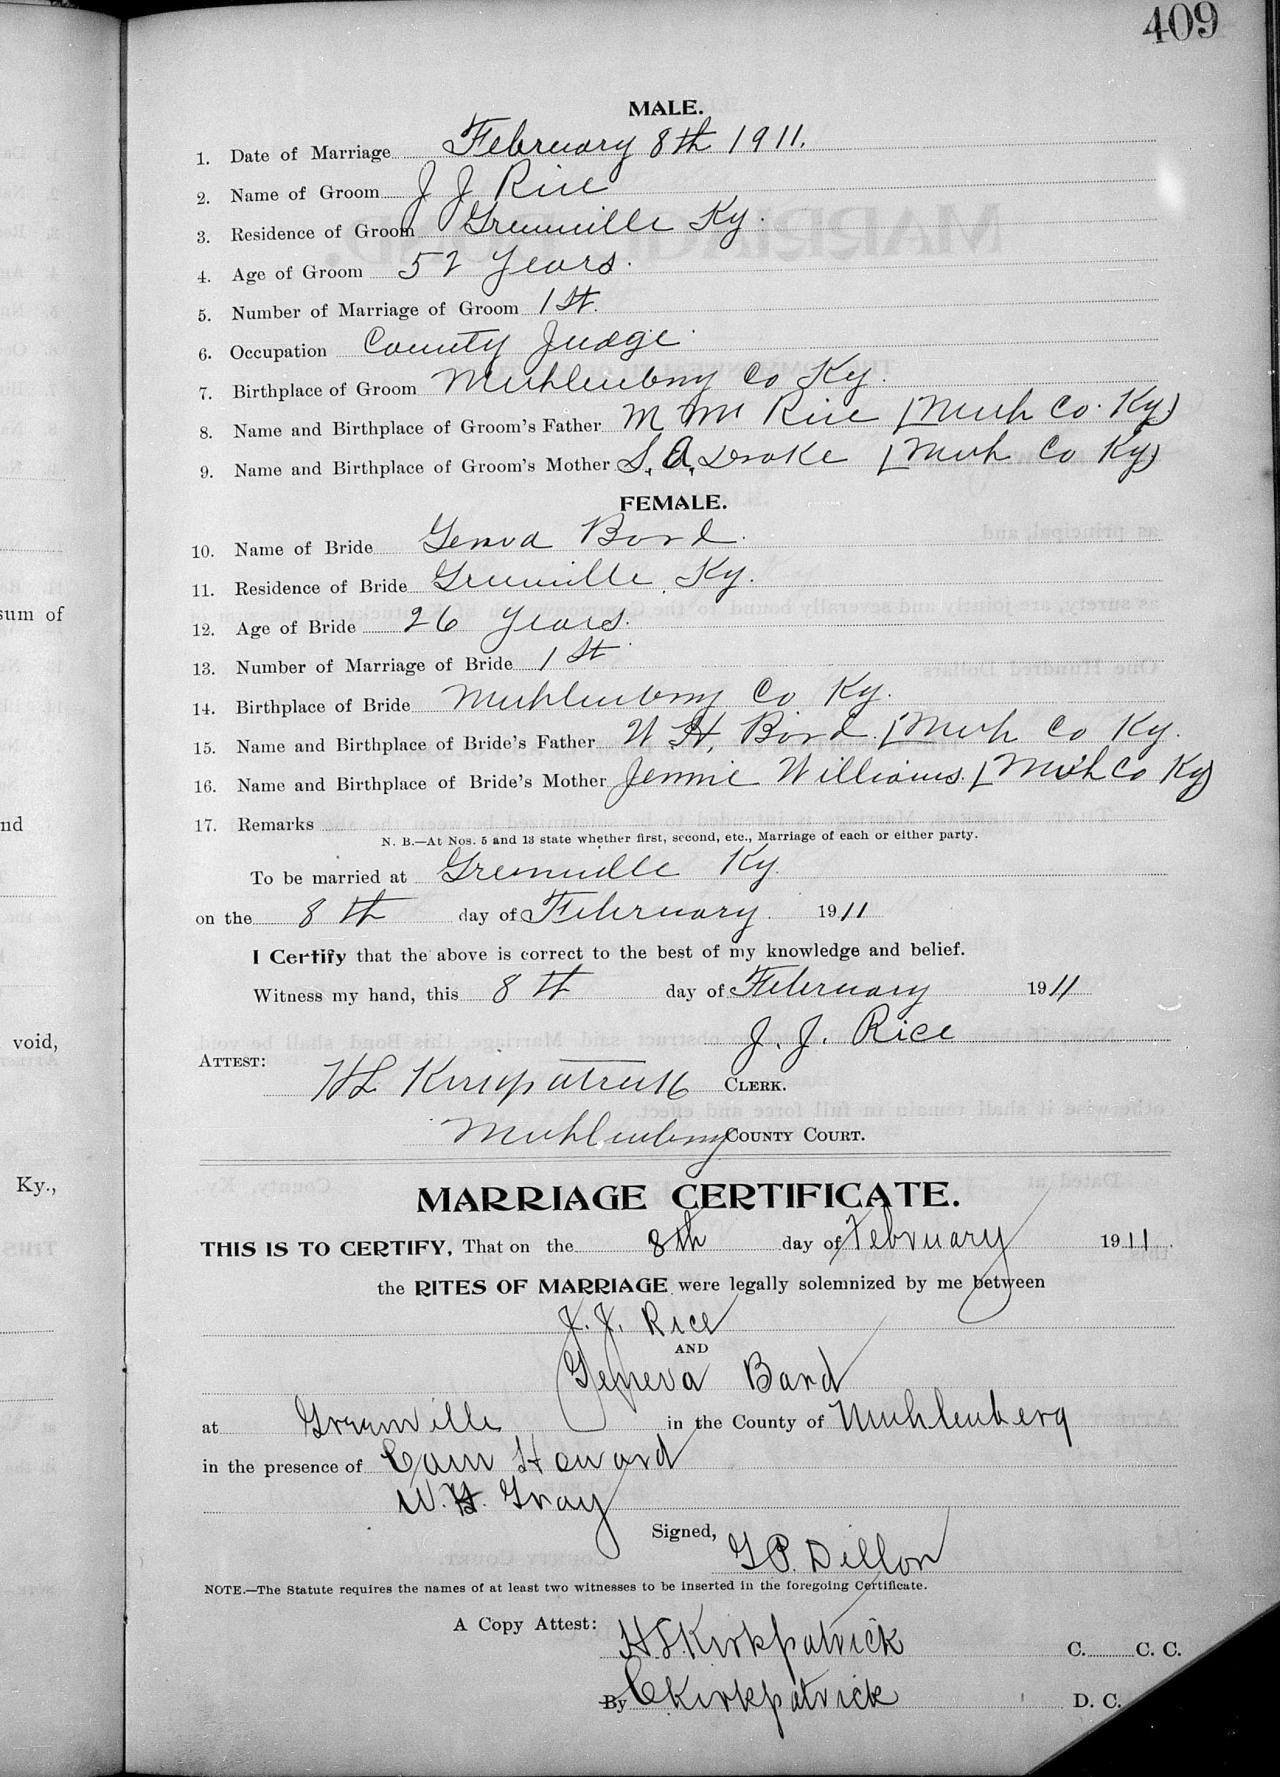 409
MALE.
1. Date of Marriage February 8th 1911.
2. Name of Groom J J Rice
3. Residence of Groom Greenville Ky.
4. Age of Groom 52 Years.
5. Number of Marriage of Groom 1st.
6. Occupation County Judge
7. Birthplace of Groom Muhlenberg Co Ky.
8. Name and Birthplace of Groom's Father M M Rice [Muh Co. Ky)
9. Name and Birthplace of Groom's Mother S. A. Drake [Muh Co Ky)
FEMALE.
10. Name of Bride Geneva Bard.
11. Residence of Bride Greenville Ky.
12. Age of Bride 26 Years.
13. Number of Marriage of Bride 1st
14. Birthplace of Bride Muhlenberg Co Ky.
15. Name and Birthplace of Bride's Father W H. Bard. [Muh Co Ky.
16. Name and Birthplace of Bride's Mother Jennie Williams. [Muh Co Ky)
17. Remarks
N. B.—At Nos. 5 and 13 state whether first, second, etc., Marriage of each or either party.
To be married at Greenville Ky.
on the 8th day of February. 1911
I Certify that the above is correct to the best of my knowledge and belief.
Witness my hand, this 8th day of February 1911
J. J. Rice
ATTEST:
HL Kirkpatrick CLERK.
Muhlenberg COUNTY COURT.
MARRIAGE CERTIFICATE.
THIS IS TO CERTIFY, That on the 8th day of February 1911.
the RITES OF MARRIAGE were legally solemnized by me between
J. J. Rice
AND
Geneva Bard
at Greenville in the County of Muhlenberg
in the presence of Cam Howard
W. H. Gray
Signed, G P. Dillon
NOTE.—The Statute requires the names of at least two witnesses to be inserted in the foregoing Certificate.
A Copy Attest: HL Kirkpatrick C. C. C.
By C Kirkpatrick D. C.
sum of
nd
void,
Ky.,